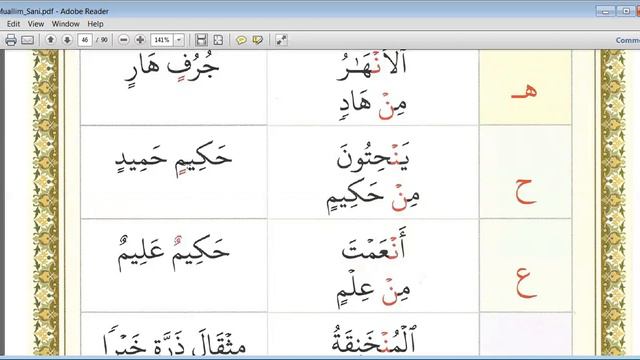 Muallim_Sani.pdf - Adobe Reader
Edit View Window Help
46 / 90 141%
هـ
ٱلْأَنْهَـٰرُ
مِنْ هَادٍ
جُرُفٍ هَارٍ
ح
يَنْحِتُونَ
مِنْ حَكِيمٍ
حَكِيمٍ حَمِيدٍ
ع
أَنْعَمْتَ
مِنْ عِلْمٍ
حَكِيمٌ عَلِيمٌ
ٱلْمُنْخَنِقَةُ
مِثْقَالَ ذَرَّةٍ خَيْرًا